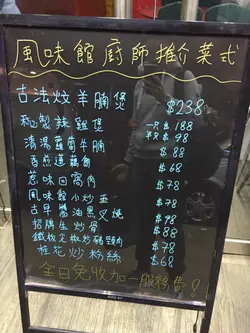 風味館廚師推介菜式
古法炆羊腩煲 $238
秘製辣雞煲 一只 $188
半只 $98
清湯蘿蔔牛腩 $88
香煎蓮藕餅 $68
惹味回窩肉 $78
風味館小炒 $78
古早醬油黑叉燒 $88
招牌生炒骨 $78
鐵板尖椒炒豬頸肉 $78
桂花炒粉絲 $68
全日免收加一服務費!